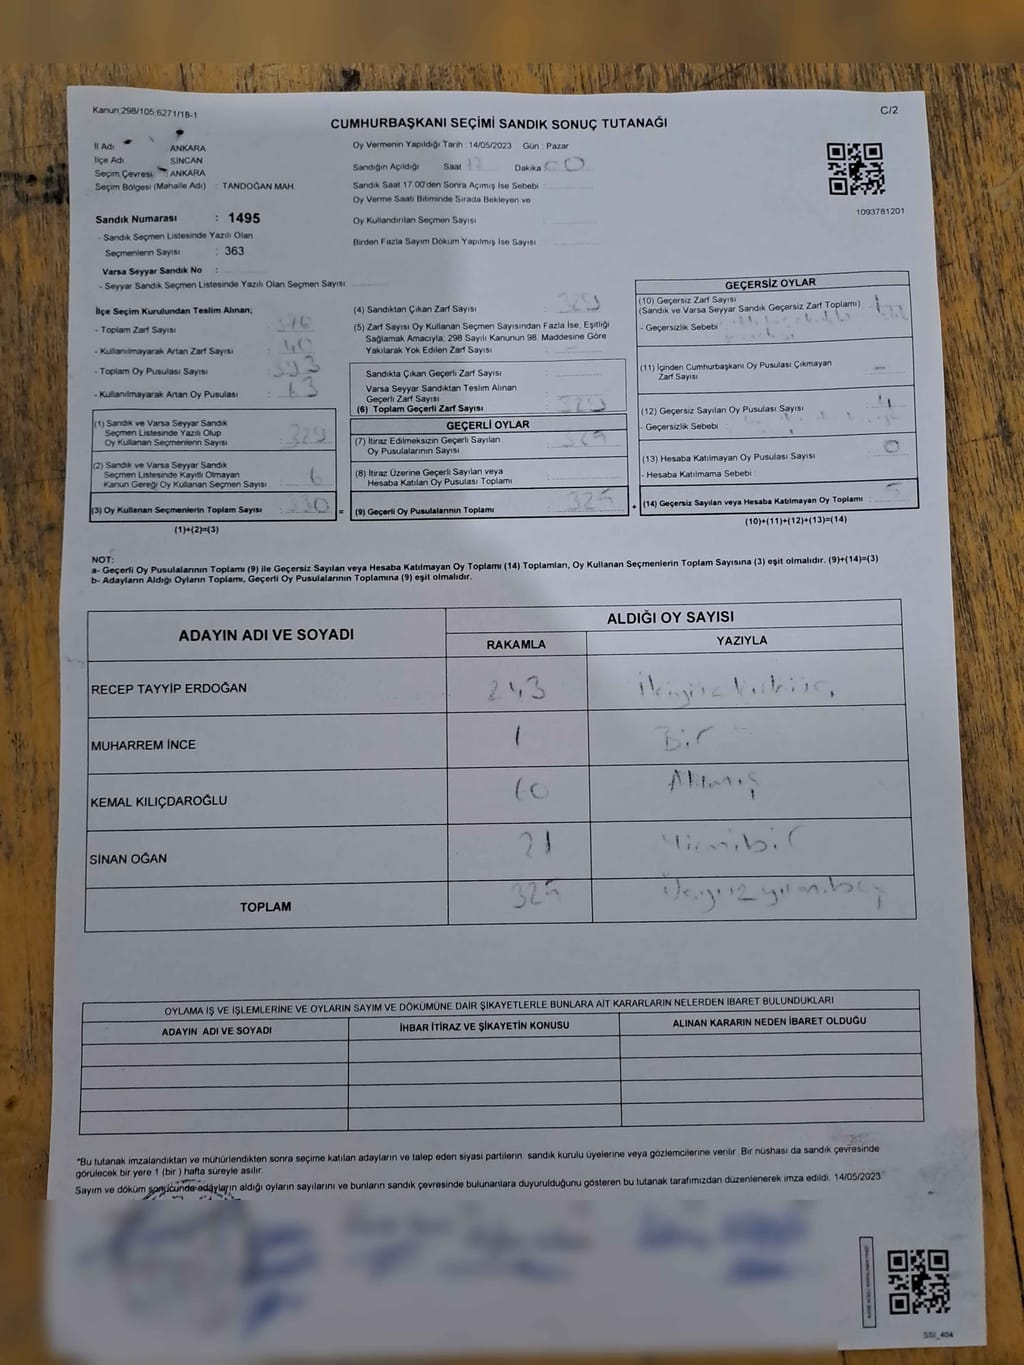 Kanun:298/105,6271/18-1
C/2
CUMHURBAŞKANI SEÇİMİ SANDIK SONUÇ TUTANAĞI
İl Adı ANKARA
İlçe Adı SİNCAN
Seçim Çevresi : ANKARA
Seçim Bölgesi (Mahalle Adı) : TANDOĞAN MAH.
Sandık Numarası : 1495
- Sandık Seçmen Listesinde Yazılı Olan
Seçmenlerin Sayısı : 363
Varsa Seyyar Sandık No :
- Seyyar Sandık Seçmen Listesinde Yazılı Olan Seçmen Sayısı
Oy Vermenin Yapıldığı Tarih : 14/05/2023 Gün : Pazar
Sandığın Açıldığı Saat 17 Dakika 00
Sandık Saat 17:00'den Sonra Açımış İse Sebebi
Oy Verme Saati Bitiminde Sırada Bekleyen ve
Oy Kullandırılan Seçmen Sayısı
Birden Fazla Sayım Döküm Yapılmış İse Sayısı
1093781201
İlçe Seçim Kurulundan Teslim Alınan;
- Toplam Zarf Sayısı : 370
- Kullanılmayarak Artan Zarf Sayısı : 40
- Toplam Oy Pusulası Sayısı : 393
- Kullanılmayarak Artan Oy Pusulası : 63
(1) Sandık ve Varsa Seyyar Sandık
Seçmen Listesinde Yazılı Olup
Oy Kullanan Seçmenlerin Sayısı :
(2) Sandık ve Varsa Seyyar Sandık
Seçmen Listesinde Kayıtlı Olmayan
Kanun Gereği Oy Kullanan Seçmen Sayısı : 6
(3) Oy Kullanan Seçmenlerin Toplam Sayısı : 330 =
(1)+(2)=(3)
(4) Sandıktan Çıkan Zarf Sayısı : 329
(5) Zarf Sayısı Oy Kullanan Seçmen Sayısından Fazla İse, Eşitliği
Sağlamak Amacıyla, 298 Sayılı Kanunun 98. Maddesine Göre
Yakılarak Yok Edilen Zarf Sayısı :
Sandıkta Çıkan Geçerli Zarf Sayısı :
Varsa Seyyar Sandıktan Teslim Alınan
Geçerli Zarf Sayısı
(6) Toplam Geçerli Zarf Sayısı : 329
GEÇERLİ OYLAR
(7) İtiraz Edilmeksizin Geçerli Sayılan
Oy Pusulalarının Sayısı : 325
(8) İtiraz Üzerine Geçerli Sayılan veya
Hesaba Katılan Oy Pusulası Toplamı :
(9) Geçerli Oy Pusulalarının Toplamı : 325 +
GEÇERSİZ OYLAR
(10) Geçersiz Zarf Sayısı
(Sandık ve Varsa Seyyar Sandık Geçersiz Zarf Toplamı) : 1
- Geçersizlik Sebebi :
(11) İçinden Cumhurbaşkanı Oy Pusulası Çıkmayan
Zarf Sayısı : -
(12) Geçersiz Sayılan Oy Pusulası Sayısı : 4
- Geçersizlik Sebebi :
(13) Hesaba Katılmayan Oy Pusulası Sayısı : 0
- Hesaba Katılmama Sebebi :
(14) Geçersiz Sayılan veya Hesaba Katılmayan Oy Toplamı : 5
(10)+(11)+(12)+(13)=(14)
NOT:
a- Geçerli Oy Pusulalarının Toplamı (9) ile Geçersiz Sayılan veya Hesaba Katılmayan Oy Toplamı (14) Toplamları, Oy Kullanan Seçmenlerin Toplam Sayısına (3) eşit olmalıdır. (9)+(14)=(3)
b- Adayların Aldığı Oyların Toplamı, Geçerli Oy Pusulalarının Toplamına (9) eşit olmalıdır.
ADAYIN ADI VE SOYADI
ALDIĞI OY SAYISI
RAKAMLA YAZIYLA
RECEP TAYYİP ERDOĞAN 243 İkiyüzkırküç
MUHARREM İNCE 1 Bir
KEMAL KILIÇDAROĞLU 60 Altmış
SİNAN OĞAN 21 Yirmibir
TOPLAM 325 Üçyüzyirmibeş
OYLAMA İŞ VE İŞLEMLERİNE VE OYLARIN SAYIM VE DÖKÜMÜNE DAİR ŞİKAYETLERLE BUNLARA AİT KARARLARIN NELERDEN İBARET BULUNDUKLARI
ADAYIN ADI VE SOYADI İHBAR İTİRAZ VE ŞİKAYETİN KONUSU ALINAN KARARIN NEDEN İBARET OLDUĞU
*Bu tutanak imzalandıktan ve mühürlendikten sonra seçime katılan adayların ve talep eden siyasi partilerin sandık kurulu üyelerine veya gözlemcilerine verilir. Bir nüshası da sandık çevresinde
görülecek bir yere 1 (bir ) hafta süreyle asılır.
Sayım ve döküm sonucunda adayların aldığı oyların sayılarını ve bunların sandık çevresinde bulunanlara duyurulduğunu gösteren bu tutanak tarafımızdan düzenlenerek imza edildi. 14/05/2023